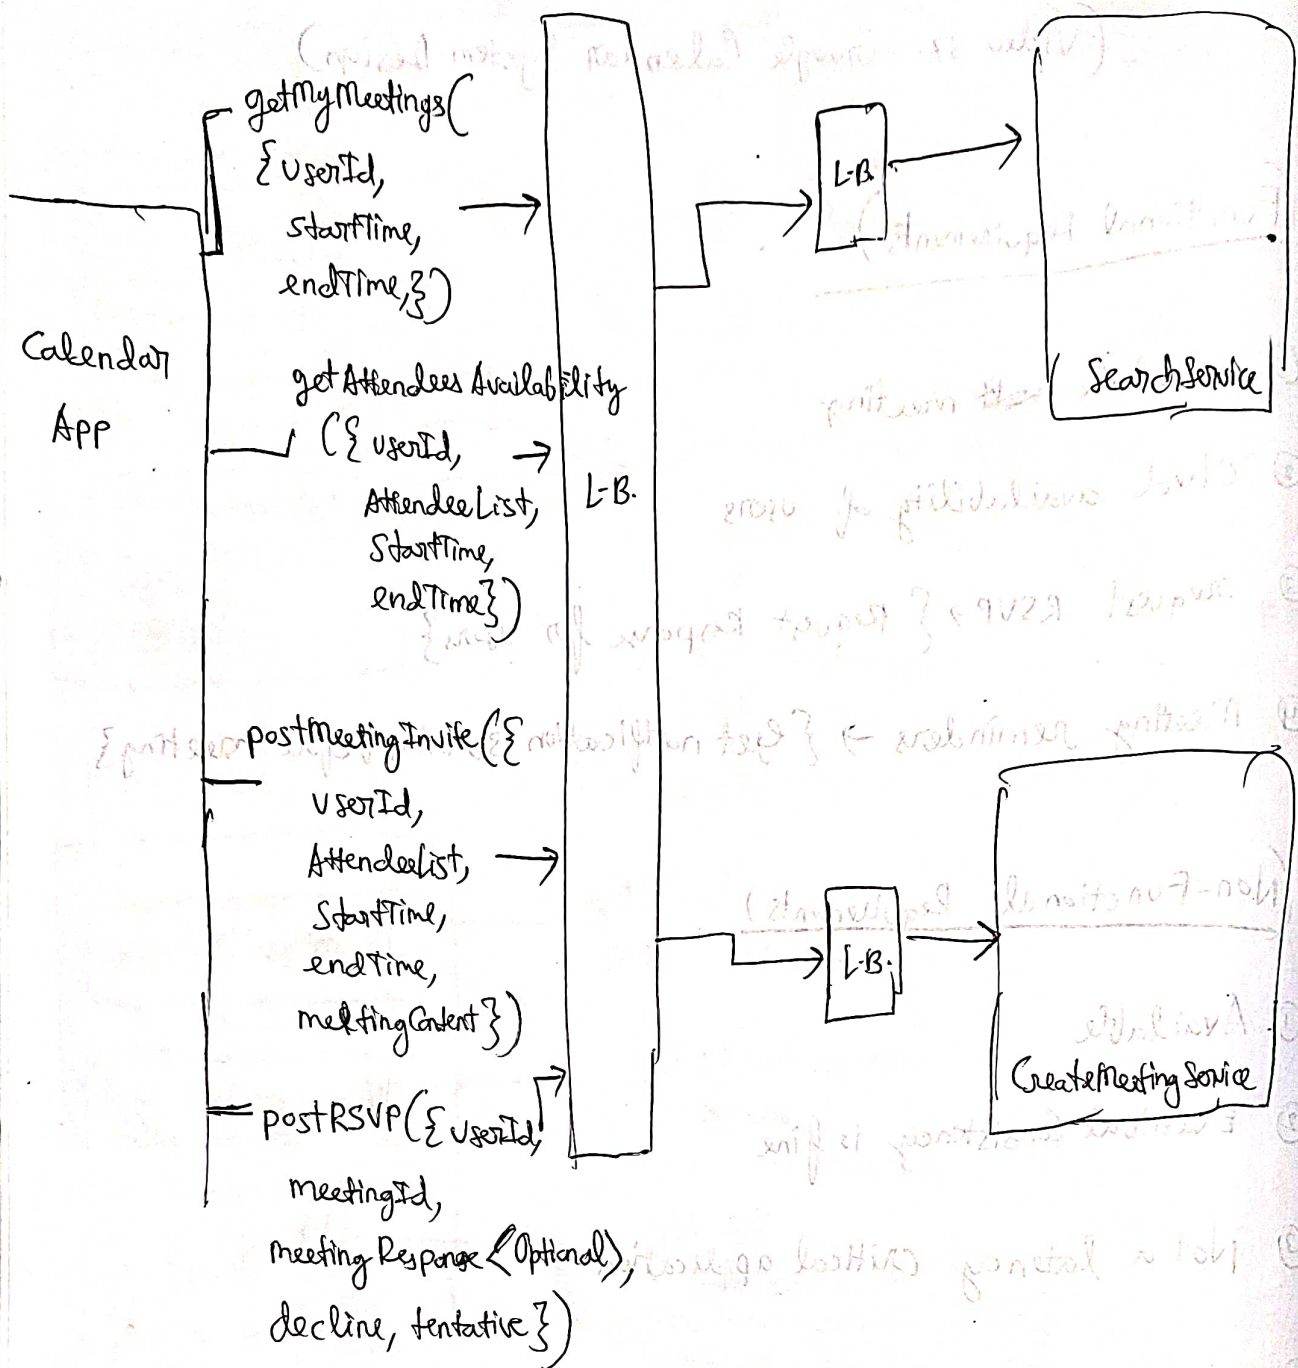 getMyMeetings(
{userId,
startTime,
endTime,})
Calendar
App
getAttendeesAvailability
({userId,
AttendeeList,
StartTime,
endTime})
postMeetingInvite({
userId,
AttendeeList,
StartTime,
endTime,
meetingContent})
postRSVP({userId,
meetingId,
meetingResponse<Optional>,
decline, tentative})
L-B.
L-B.
SearchService
L-B.
CreateMeetingService